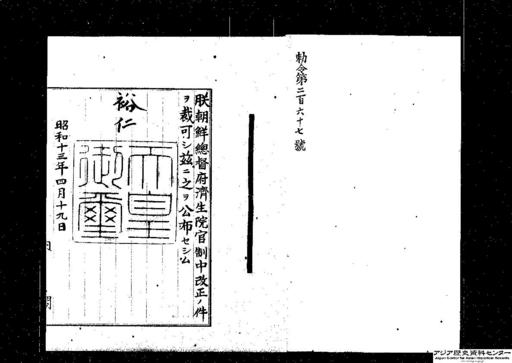 勅令第二百六十七號
朕朝鮮總督府濟生院官制中改正ノ件
ヲ裁可シ玆ニ之ヲ公布セシム
裕仁
天皇
御璽
昭和十三年四月十九日
アジア歴史資料センター
Japan Center for Asian Historical Records